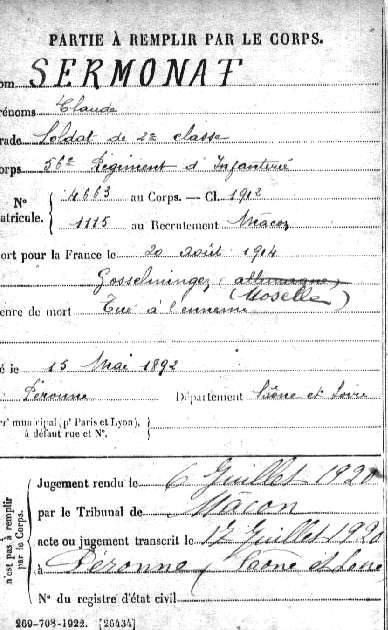 PARTIE À REMPLIR PAR LE CORPS.
om SERMONAT
rénoms Claude
rade Soldat de 2e classe
orps 56e Régiment d'Infanterie
N° 4663 au Corps. — Cl. 1912
atricule. 1115 au Recrutement Mâcon
ort pour la France le 20 août 1914
Gosselminger (allemagne)
(Moselle)
enre de mort Tué à l'ennemi
é le 15 Mai 1892
Péronne Département Saône et Loire
rr' municipal (pr Paris et Lyon),
à défaut rue et N°.
n'est pas à remplir
par le Corps.
Jugement rendu le 6 Juillet 1920
par le Tribunal de Mâcon
acte ou jugement transcrit le 17 Juillet 1920
à Péronne, Saône et Loire
N° du registre d'état civil
269-708-1922. [26434]